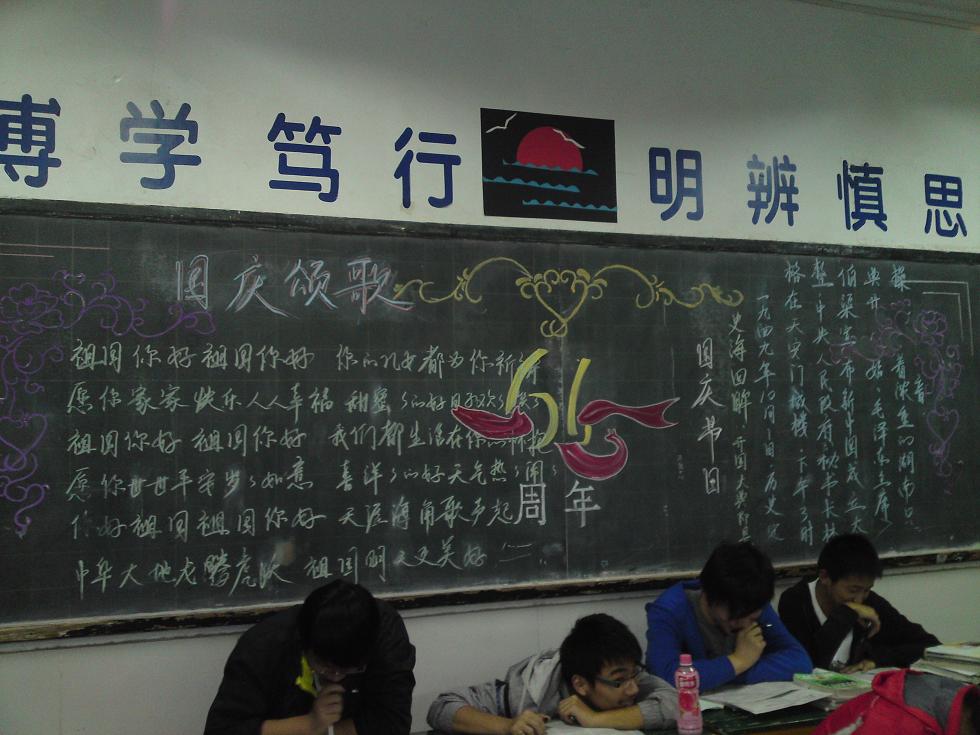 博学笃行 明辨慎思
国庆颂歌
祖国你好祖国你好 你的儿女都为你祈祷
愿你家家快乐人人幸福 甜蜜
祖国你好 祖国你好 我们都生活在你的怀抱
愿你世世平安岁岁如意 喜洋洋的好天气热闹闹
你好祖国祖国你好 天涯海角歌声起
中华大地龙腾虎跃 祖国明天更美好
61
周年
操着
着浓重的湖南口
典开始 毛泽东主席
伯渠宣布新中国成立大
整 中央人民政府秘书长林
格在天安门城楼 下午3时
一九四九年10月1日 历史定
史海回眸 开国大典
国庆节日